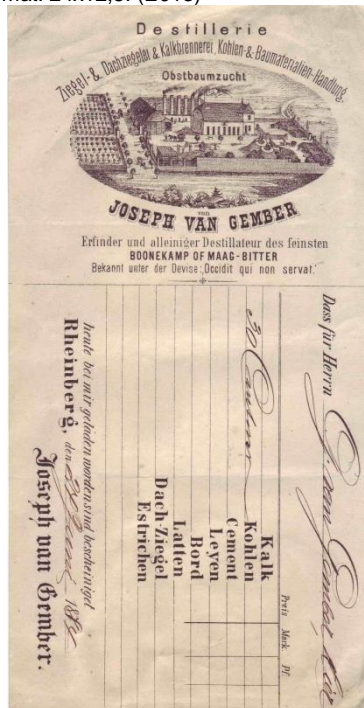 Destillerie
Ziegel- & Dachziegelei & Kalkbrennerei, Kohlen- & Baumaterialien-Handlung,
Obstbaumzucht
von
JOSEPH VAN GEMBER
Erfinder und alleiniger Destillateur des feinsten
BOONEKAMP OF MAAG-BITTER
Bekannt unter der Devise: „Occidit qui non servat.“
Dass für Herrn J. van Gember
Preis Mark Pf.
Kalk
30 Centner Kohlen
Cement
Leyen
Bord
Latten
Dach-Ziegel
Estrichen
heute bei mir geladen worden sind bescheinigt
Rheinberg, den 18
Joseph van Gember.